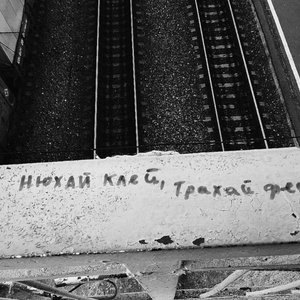 Нюхай клей, трахай